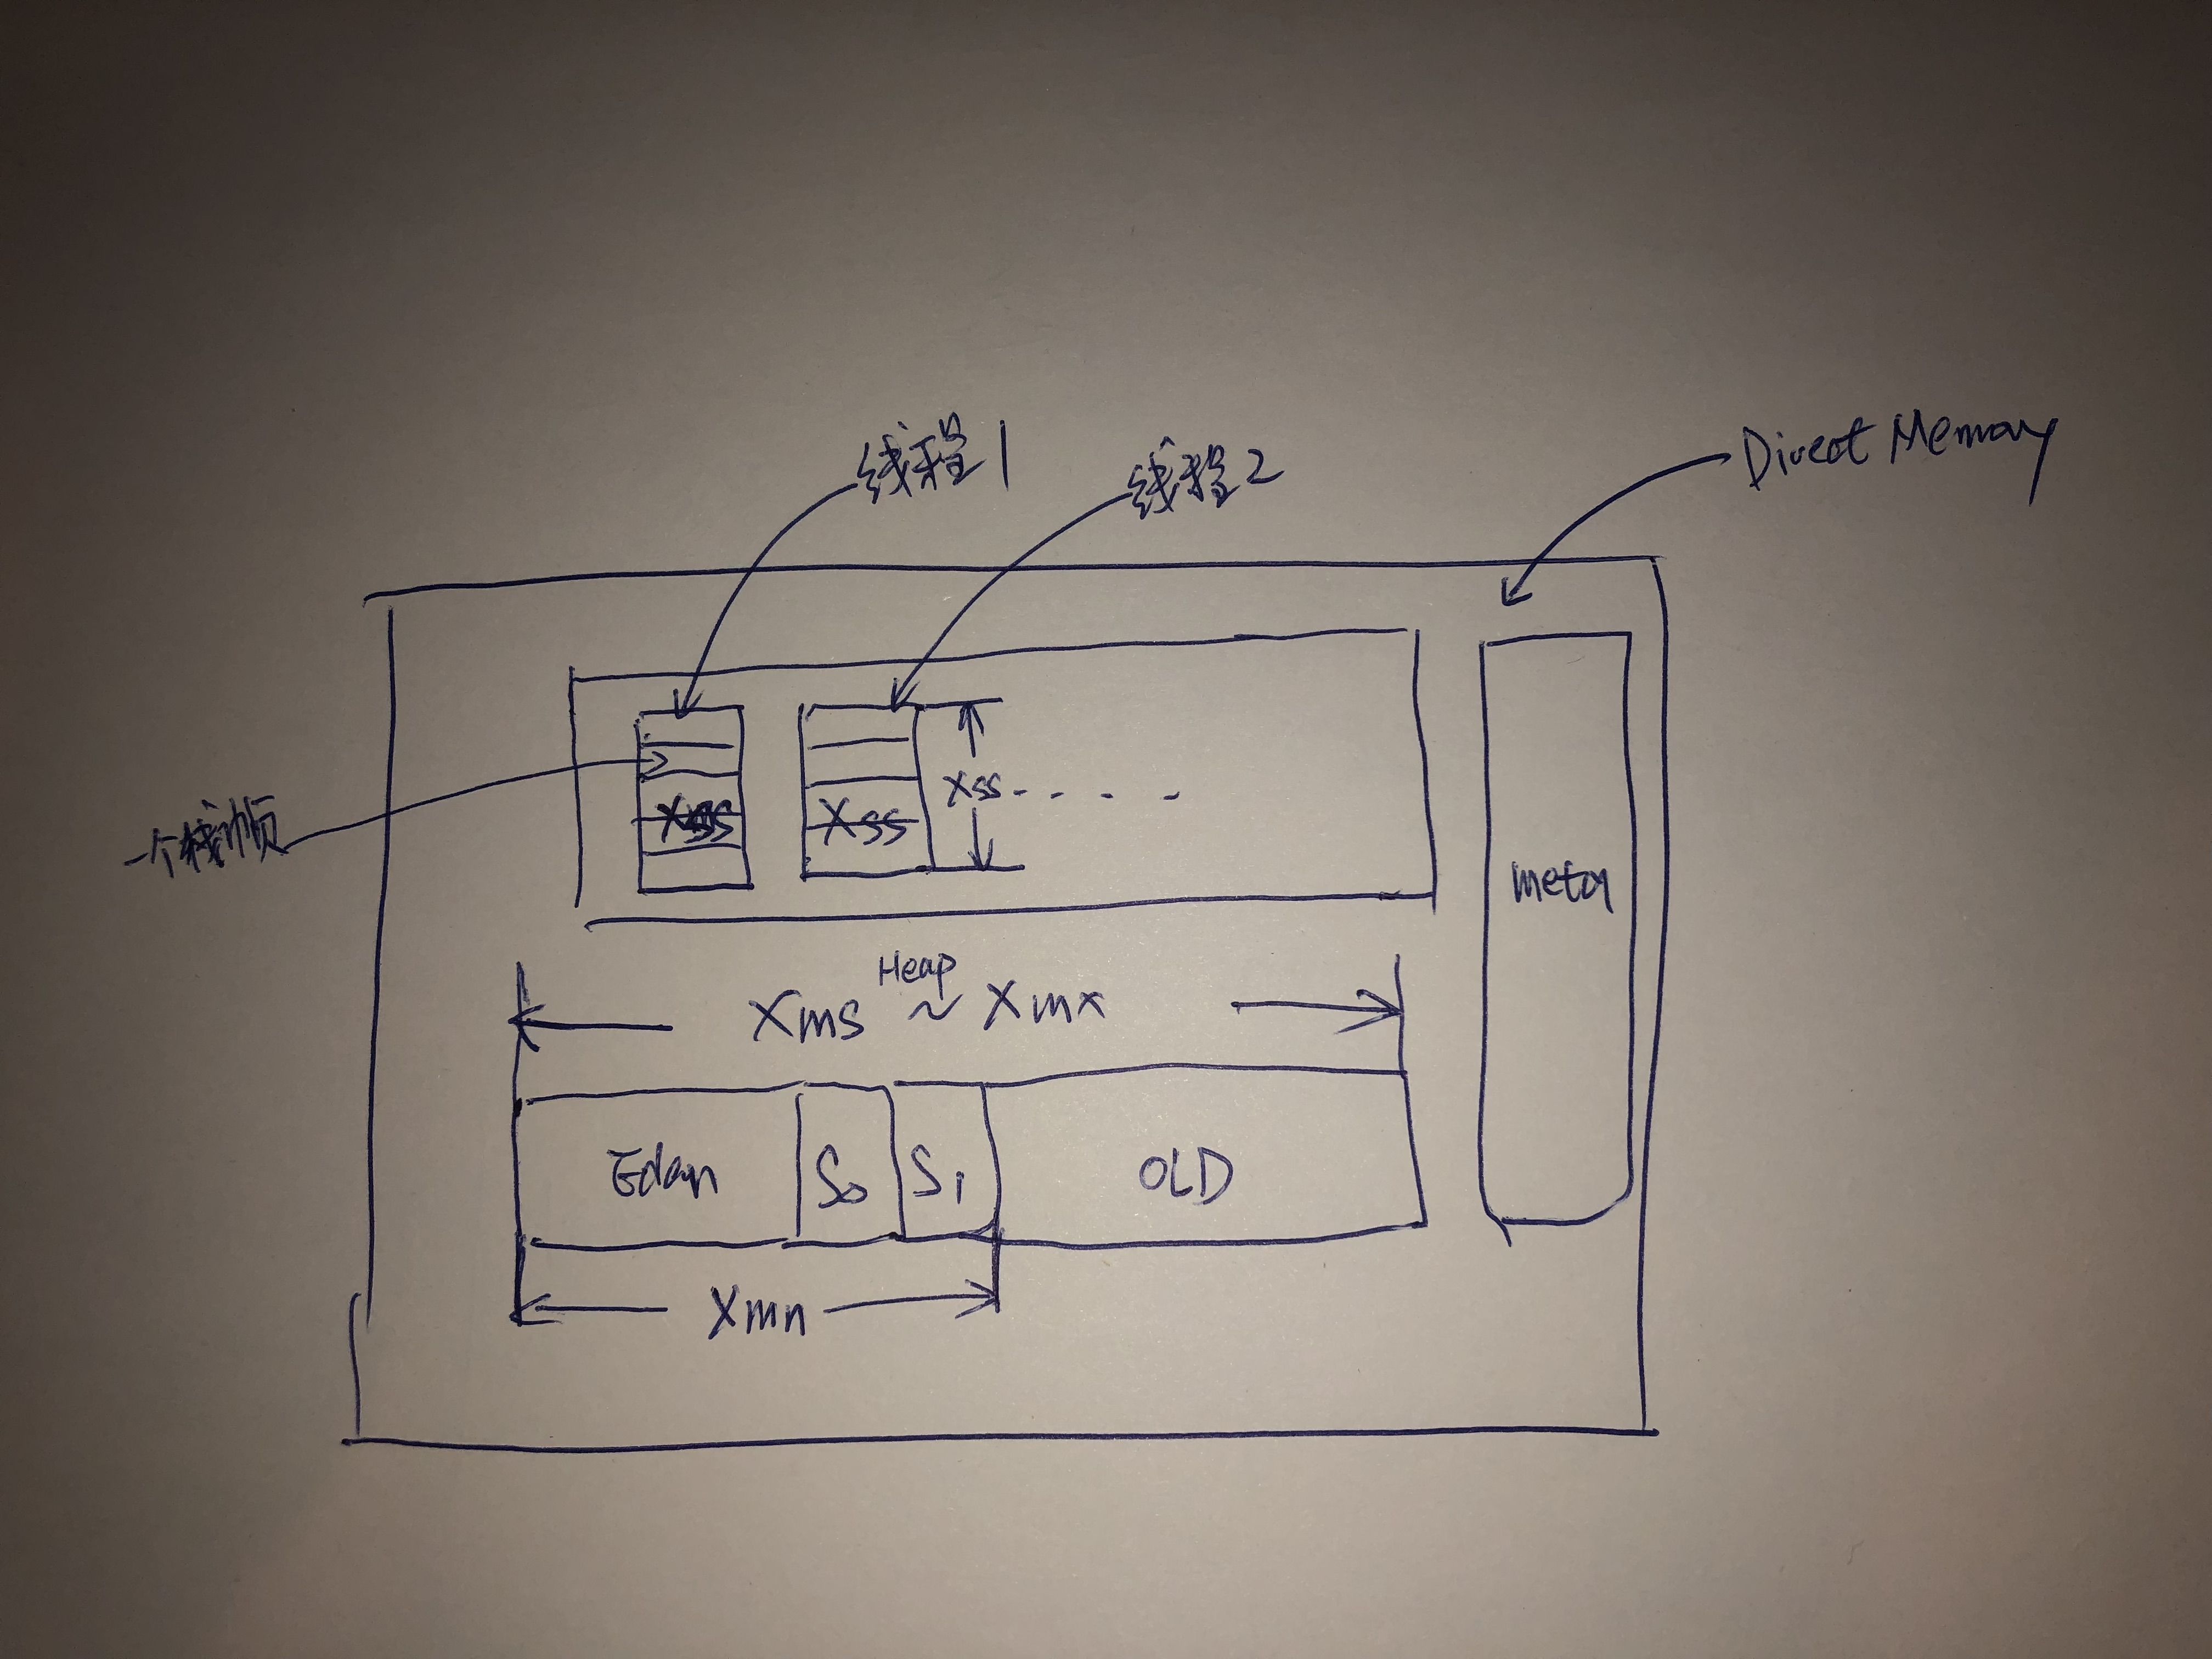 线程1
线程2
Direct Memory
一个栈帧
Xss
Xss
Xss . . . .
meta
Heap
Xms ~ Xmx
Eden
S0
S1
OLD
Xmn